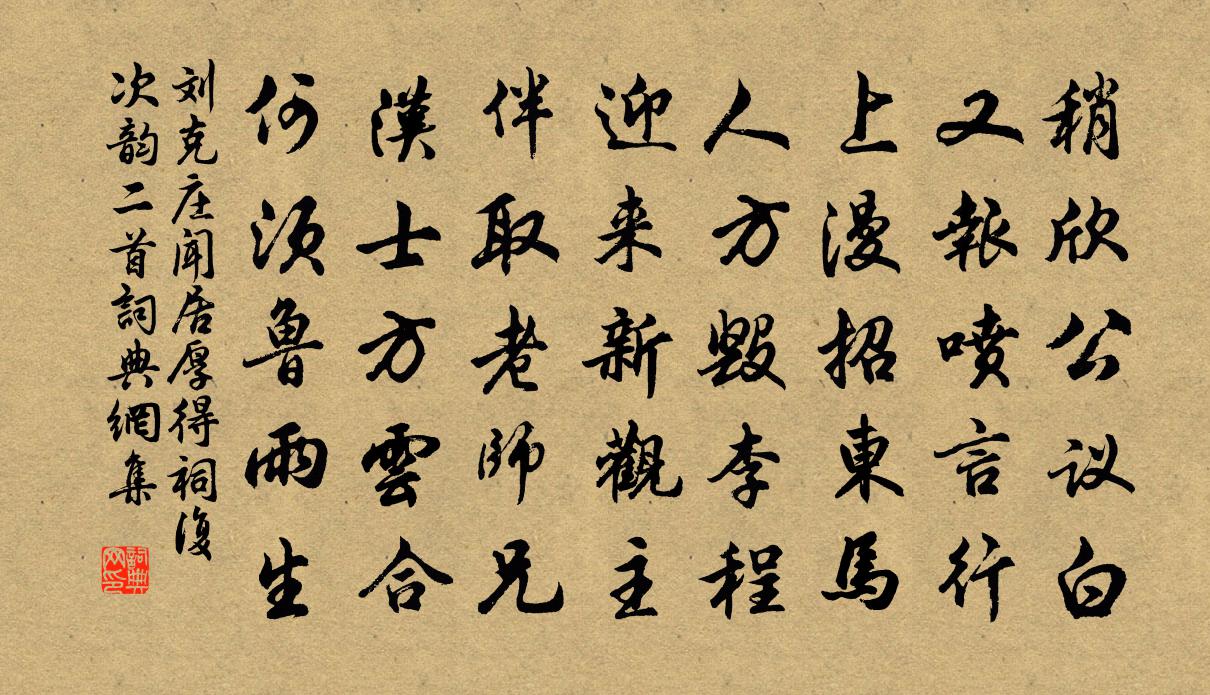 稍欣公议白
又報噴言行
上漫招東馬
人方毀李程
迎来新觀主
伴取老師兄
漢士方雲合
何須魯兩生
刘克庄闻居厚得祠復
次韵二首詞典網集
詞典网印